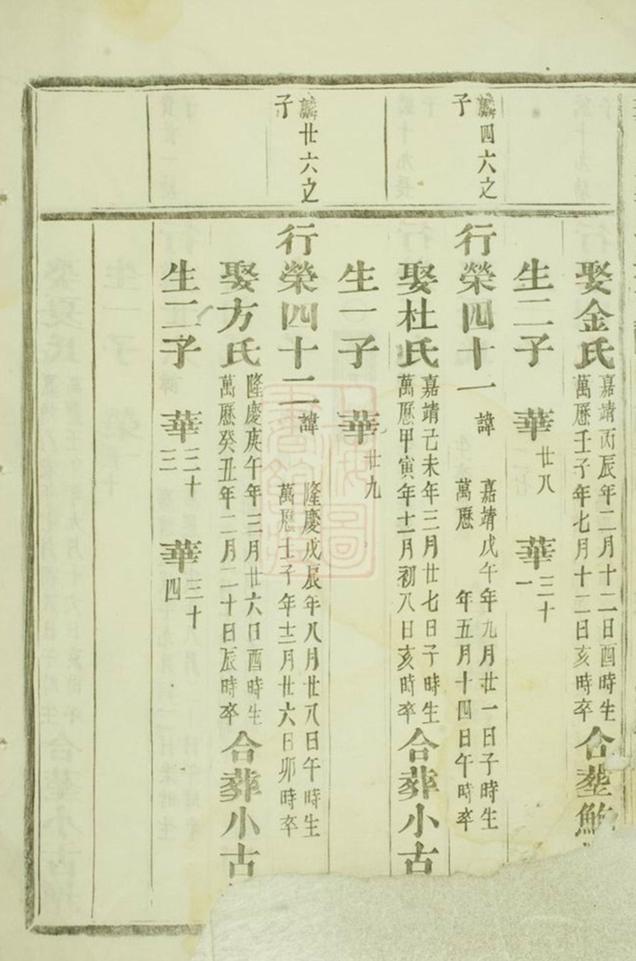 娶金氏 嘉靖丙辰年二月十二日酉時生 萬曆壬子年七月十二日亥時卒 合葬
生二子 華廿八 華三十一
麟四六之子
行榮四十一 諱 嘉靖戊午年九月廿一日子時生 萬曆 年五月十四日午時卒
娶杜氏 嘉靖己未年三月廿七日子時生 萬曆甲寅年十一月初八日亥時卒 合葬小古
生一子 華廿九
麟廿六之子
行榮四十二 諱 隆慶戊辰年八月廿八日午時生 萬曆壬子年十二月廿六日卯時卒
娶方氏 隆慶庚午年三月廿六日酉時生 萬曆癸丑年二月二十日辰時卒 合葬小古
生二子 華三十三 華三十四